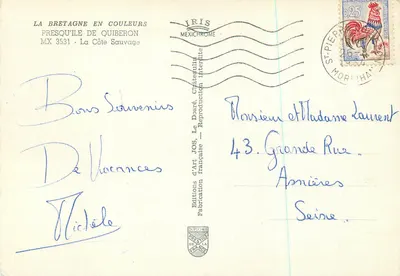 LA BRETAGNE EN COULEURS
PRESQU'ILE DE QUIBERON
MX 3531 - La Côte Sauvage
IRIS
MEXICHROME
Editions d'Art JOS, Le Doaré, Châteaulin
Fabrication française — Reproduction interdite
Bons Souvenirs
De Vacances
Michèle
Monsieur et Madame Laurent
43. Grande Rue.
Asnières
Seine.